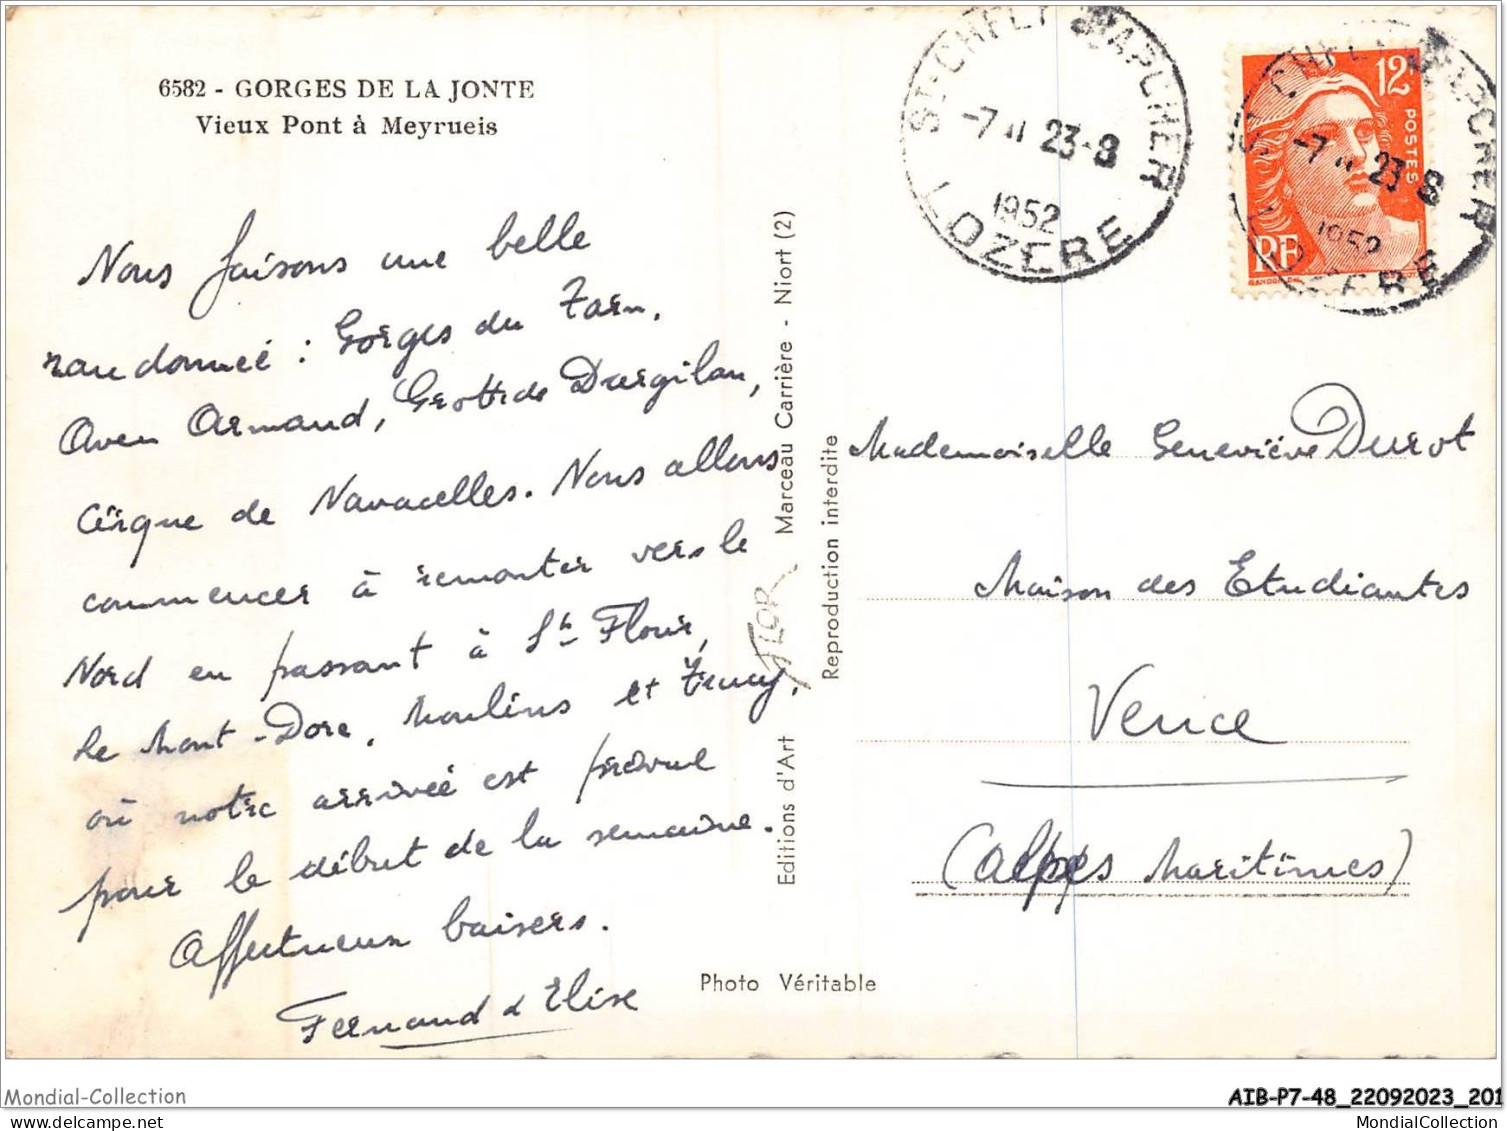 6582 - GORGES DE LA JONTE
Vieux Pont à Meyrueis
Nous faisons une belle
randonneé : Gorges du Tarn,
Aven Armand, Grotte de Dargilan,
Cirque de Navacelles. Nous allons
commencer à remonter vers le
Nord en passant à St Flour,
le Mont-Dore, Moulins et
où notre arrivée est prévue
pour le début de la semaine.
Affectueux baisers.
Fernand & Elise
Editions d'Art
FLOR
Marceau Carrière - Niort (2)
Reproduction interdite
Photo Véritable
ST-CHELY D'APCHER
-7 23-8
1952
LOZERE
12F
POSTES
RF
GANDON
-7 23-8
1952
LOZERE
Mademoiselle Geneviève Durot
Maison des Etudiantes
Vence
(Alpes Maritimes)
Mondial-Collection
AIB-P7-48_22092023_201
MondialCollection